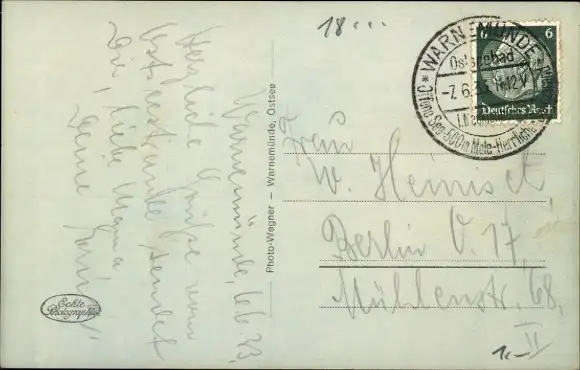 18...
Warnemünde, 6.6.33.
Herzliche Grüße vom
Ostseestrande sendet
Dir, liebe Mama
Deine
Photo-Wegner - Warnemünde, Ostsee
Echte
Photographie
WARNEMÜNDE
Ostseebad
-7.6.33 11-12V
6 6
Deutsches Reich
Frau
W. Heinisch
Berlin O. 17,
Mühlenstr. 68,
II